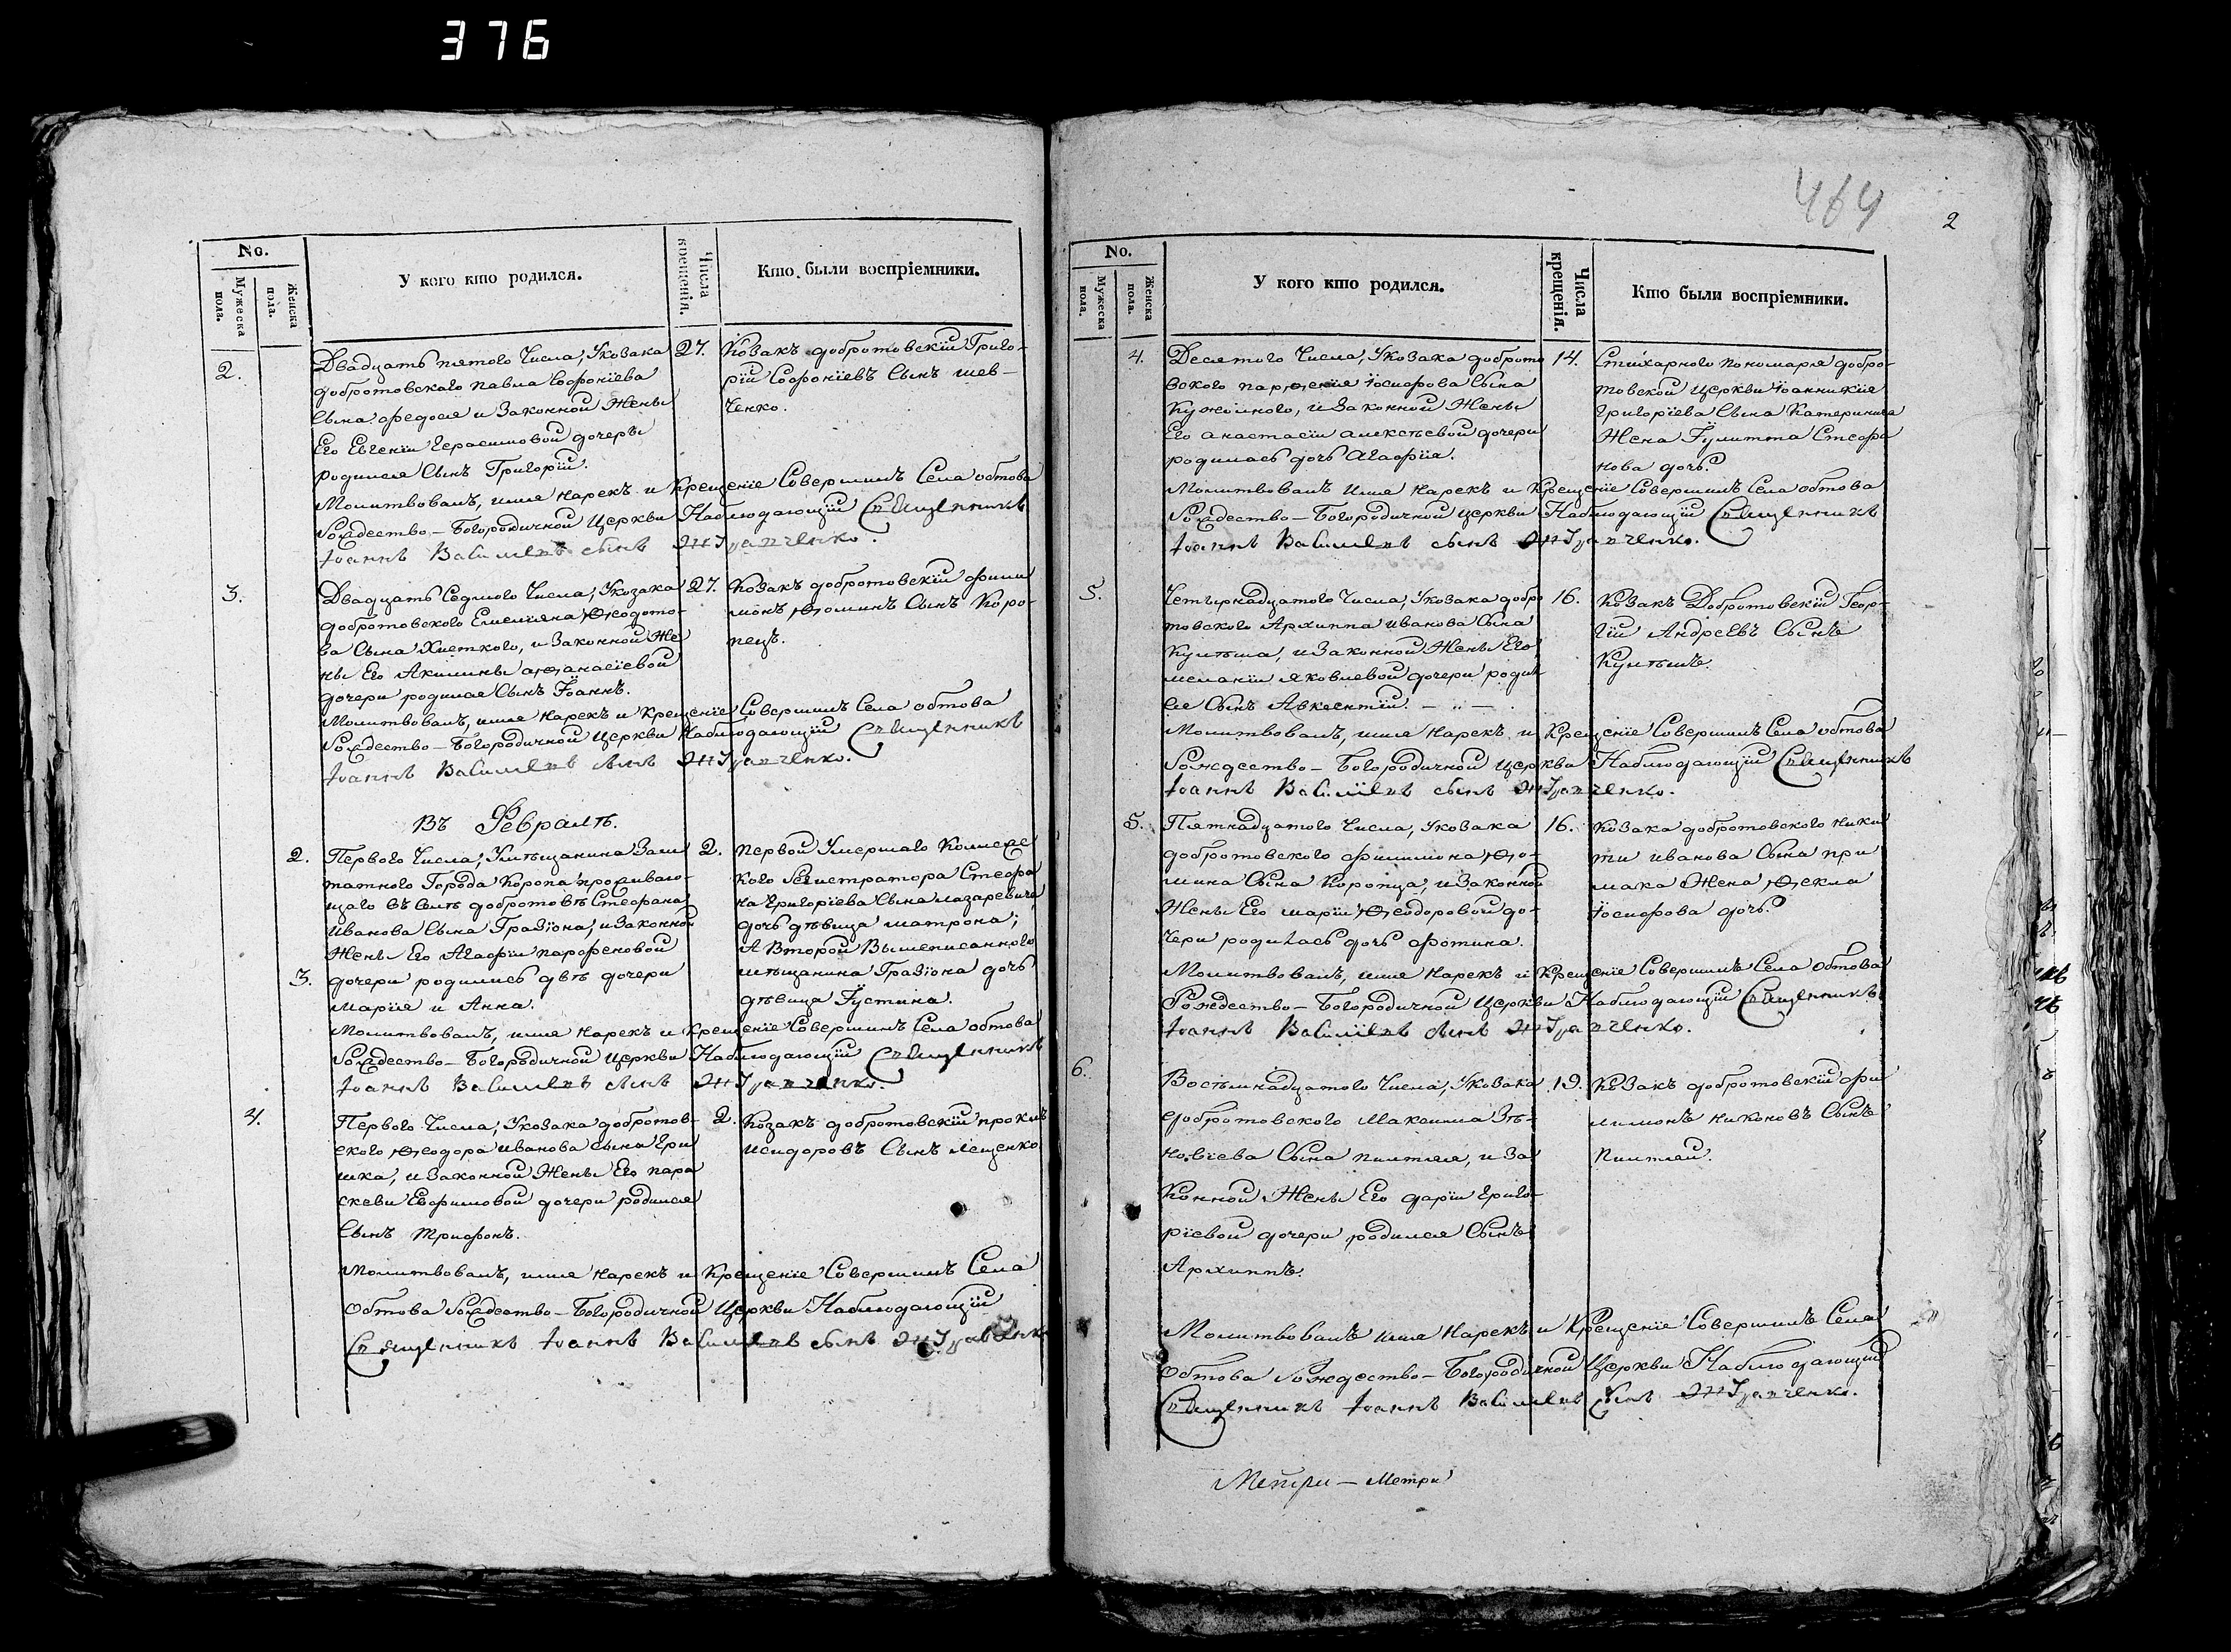 376
No.
Мужеска пола.
Женска пола.
У кого кто родился.
Числа крещенія.
Кто были воспріемники.
2.
Двадцать пятого Числа, У козака
добротовскаго павла Софроніева
Сына федося и Законной Жены
Его Евгеніи Герасимовой дочеры
родился Сынъ Григорій.
27.
Козакъ добротовскій Григо-
рій Софроніевъ Сынъ шев-
ченко.
Молитвовалъ, имя нарекъ и Крещеніе Совершилъ Села обтова
Рождество-Богородичной Церкви Наблюдающій Священникъ
Іоаннъ Василіевъ сынъ
3.
Двадцать Седмого Числа, У козака
добротовского Емеліяна Ѳеодото-
ва Сына Хметкого, и Законной Же
ны Его Акилины аѳанасіевой
дочери родился Сынъ Іоаннъ.
27.
Козакъ добротовскій фили
монъ Ѳоминъ Сынъ Коро-
пецъ.
Молитвовалъ, имя нарекъ и Крещеніе Совершилъ Села обтова
Рождество-Богородичной Церкви Наблюдающій Священникъ
Іоаннъ Василіевъ сынъ
Въ Февралѣ.
2.
3.
Первого Числа, У мѣщанина Заш
татного Города Коропа проживаю-
щаго въ Селѣ добротовѣ Стефана
Иванова Сына Гразіона, и Законной
Жены Его Агафіи парфеновой
дочери родились двѣ дочери
Марія и Анна.
2.
первой Умершаго Колліежс
кого Регистратора Стефа
на Григоріева Сына лазаревича
дочь дѣвица матрона;
А Второй Вышеписанного
мѣщанина Гразіона дочь
дѣвица Іустина.
Молитвовалъ, имя нарекъ и Крещеніе Совершилъ Села обтова
Рождество-Богородичной Церкви Наблюдающій Священникъ
Іоаннъ Василіевъ сынъ
4.
Первого Числа, У козака добротов-
ского Ѳеодора иванова Сына Гри
шка, и Законной Жены Его пара
скеви Евфимовой дочери родился
Сынъ трифонъ.
2.
Козакъ добротовскій проклъ
исидоровъ Сынъ лещенко
Молитвовалъ, имя нарекъ и Крещеніе Совершилъ Села
Обтова Рождество-Богородичной Церкви Наблюдающій
Священникъ Іоаннъ Василіевъ сынъ
464
2
No.
Мужеска пола.
Женска пола.
У кого кто родился.
Числа крещенія.
Кто были воспріемники.
4.
Десятого Числа, У козака доброто
вского парѳенія іосифова Сына
Кужѣльного, и Законной Жены
Его анастасіи алексѣевой дочери
родилась дочь Агафія.
14.
Стихарного пономаря добро-
товской Церкви іоанникія
Григоріева Сына Катеринича
Жена Іулитта Стефа
нова дочь.
Молитвовалъ имя нарекъ и Крещеніе Совершилъ Села обтова
Рождество-Богородичной Церкви Наблюдающій Священникъ
Іоаннъ Василіевъ сынъ
5.
Четырнадцатого Числа, У козака добро
товского Архиппа иванова Сына
Кулѣша, и Законной Жены Его
меланіи яковлевой дочери родил
ся Сынъ Авксентій. — „ —
16.
Козакъ Добротовскій Геор-
гій Андреевъ Сынъ
Кулѣшъ.
Молитвовалъ, имя нарекъ и Крещеніе Совершилъ Села обтова
Рождество-Богородичной Церкви Наблюдающій Священникъ
Іоаннъ Василіевъ сынъ
5.
Пятнадцатого Числа, У козака
добротовского филимона Ѳо-
мина Сына Коропца, и Законной
Жены Его маріи Ѳеодоровой до-
чери родилась дочь фотина.
16.
Козака добротовского ники
ти иванова Сына при
мака Жена Ѳекла
іосифова дочь.
Молитвовалъ, имя нарекъ и Крещеніе Совершилъ Села Обтова
Рождество-Богородичной Церкви Наблюдающій Священникъ
Іоаннъ Василіевъ сынъ
6.
Восемнадцатого Числа, У козака
добротовского Максима Зѣ-
новіева Сына пилтяя, и За
конной Жены Его даріи Григо-
ріевой дочери родился Сынъ
Архиппъ.
19.
Козакъ добротовскій фи
лимонъ никоновъ Сынъ
Пилтяй.
Молитвовалъ имя нарекъ и Крещеніе Совершилъ Села
Обтова Рождество-Богородичной Церкви Наблюдающій
Священникъ Іоаннъ Василіевъ сынъ
Метри — Метри